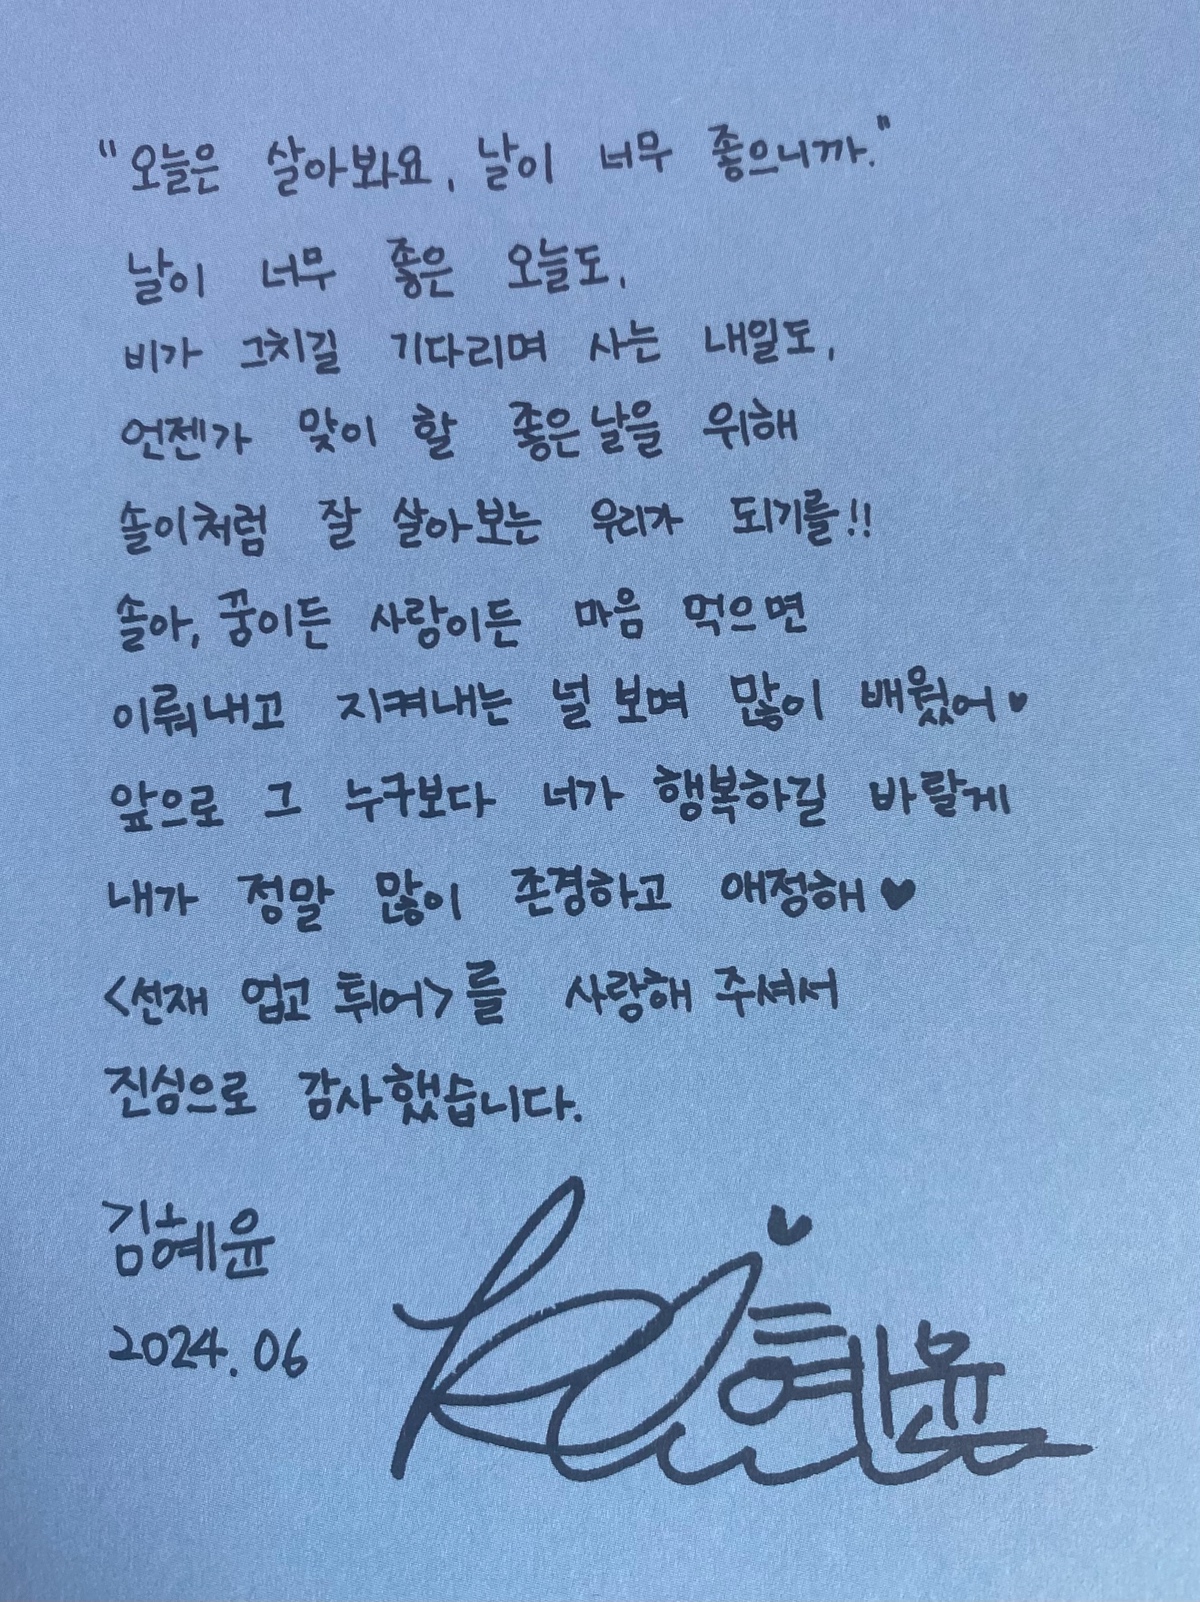 "오늘은 살아봐요, 날이 너무 좋으니까."
날이 너무 좋은 오늘도,
비가 그치길 기다리며 사는 내일도,
언젠가 맞이 할 좋은 날을 위해
솔이처럼 잘 살아보는 우리가 되기를!!
솔아, 꿈이든 사랑이든 마음 먹으면
이뤄내고 지켜내는 널 보며 많이 배웠어♥
앞으로 그 누구보다 너가 행복하길 바랄게
내가 정말 많이 존경하고 애정해♥
<선재 업고 튀어>를 사랑해 주셔서
진심으로 감사했습니다.
김혜윤
2024. 06